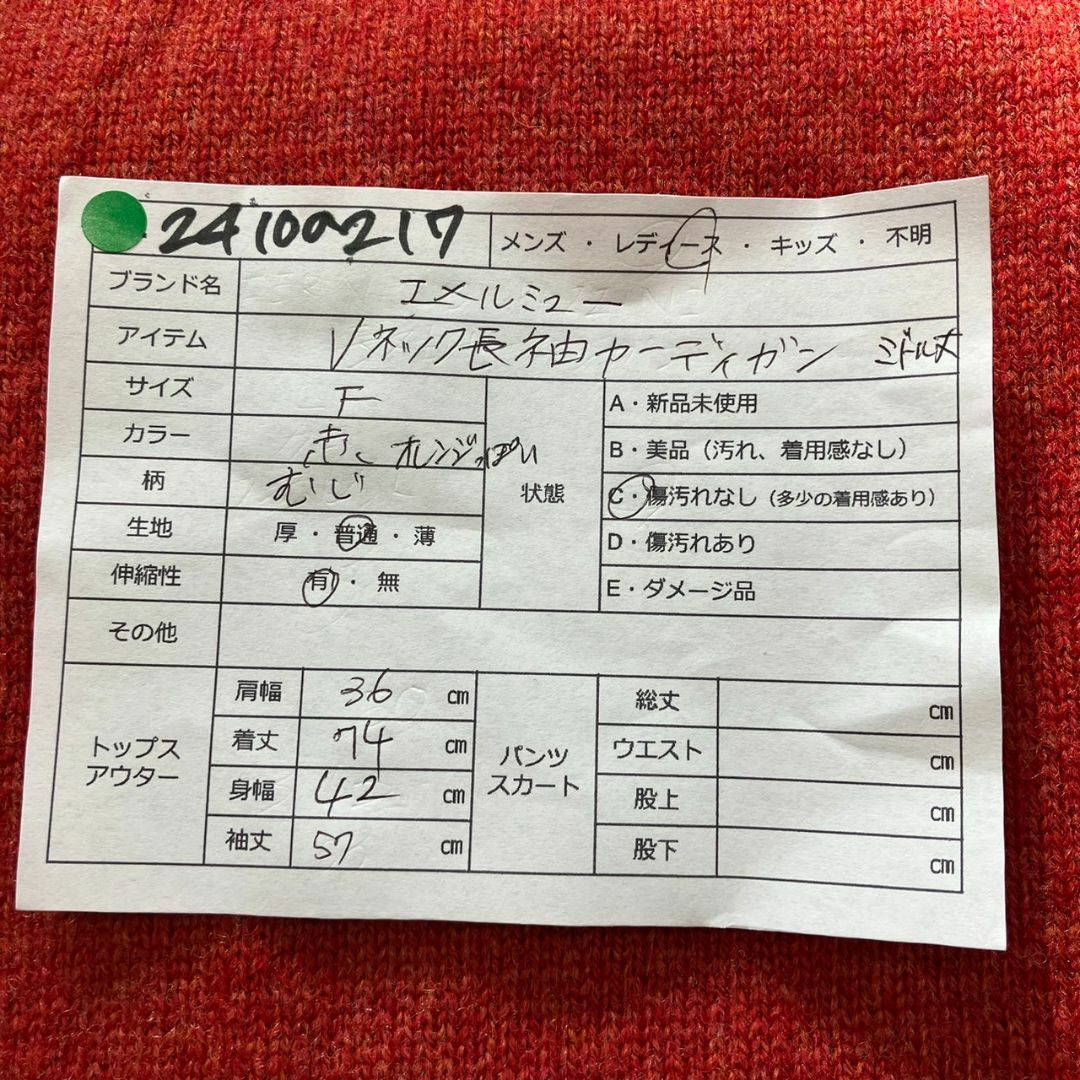 24100217 メンズ・レディース・キッズ・不明
ブランド名 エメルミュー
アイテム Vネック長袖カーディガン ミドル丈
サイズ F
カラー 赤 オレンジっぽい
柄 むじ
生地 厚・普通・薄
伸縮性 有・無
状態
A・新品未使用
B・美品（汚れ、着用感なし）
C・傷汚れなし（多少の着用感あり）
D・傷汚れあり
E・ダメージ品
その他
トップス
アウター
肩幅 36 cm
着丈 74 cm
身幅 42 cm
袖丈 57 cm
パンツ
スカート
総丈 cm
ウエスト cm
股上 cm
股下 cm